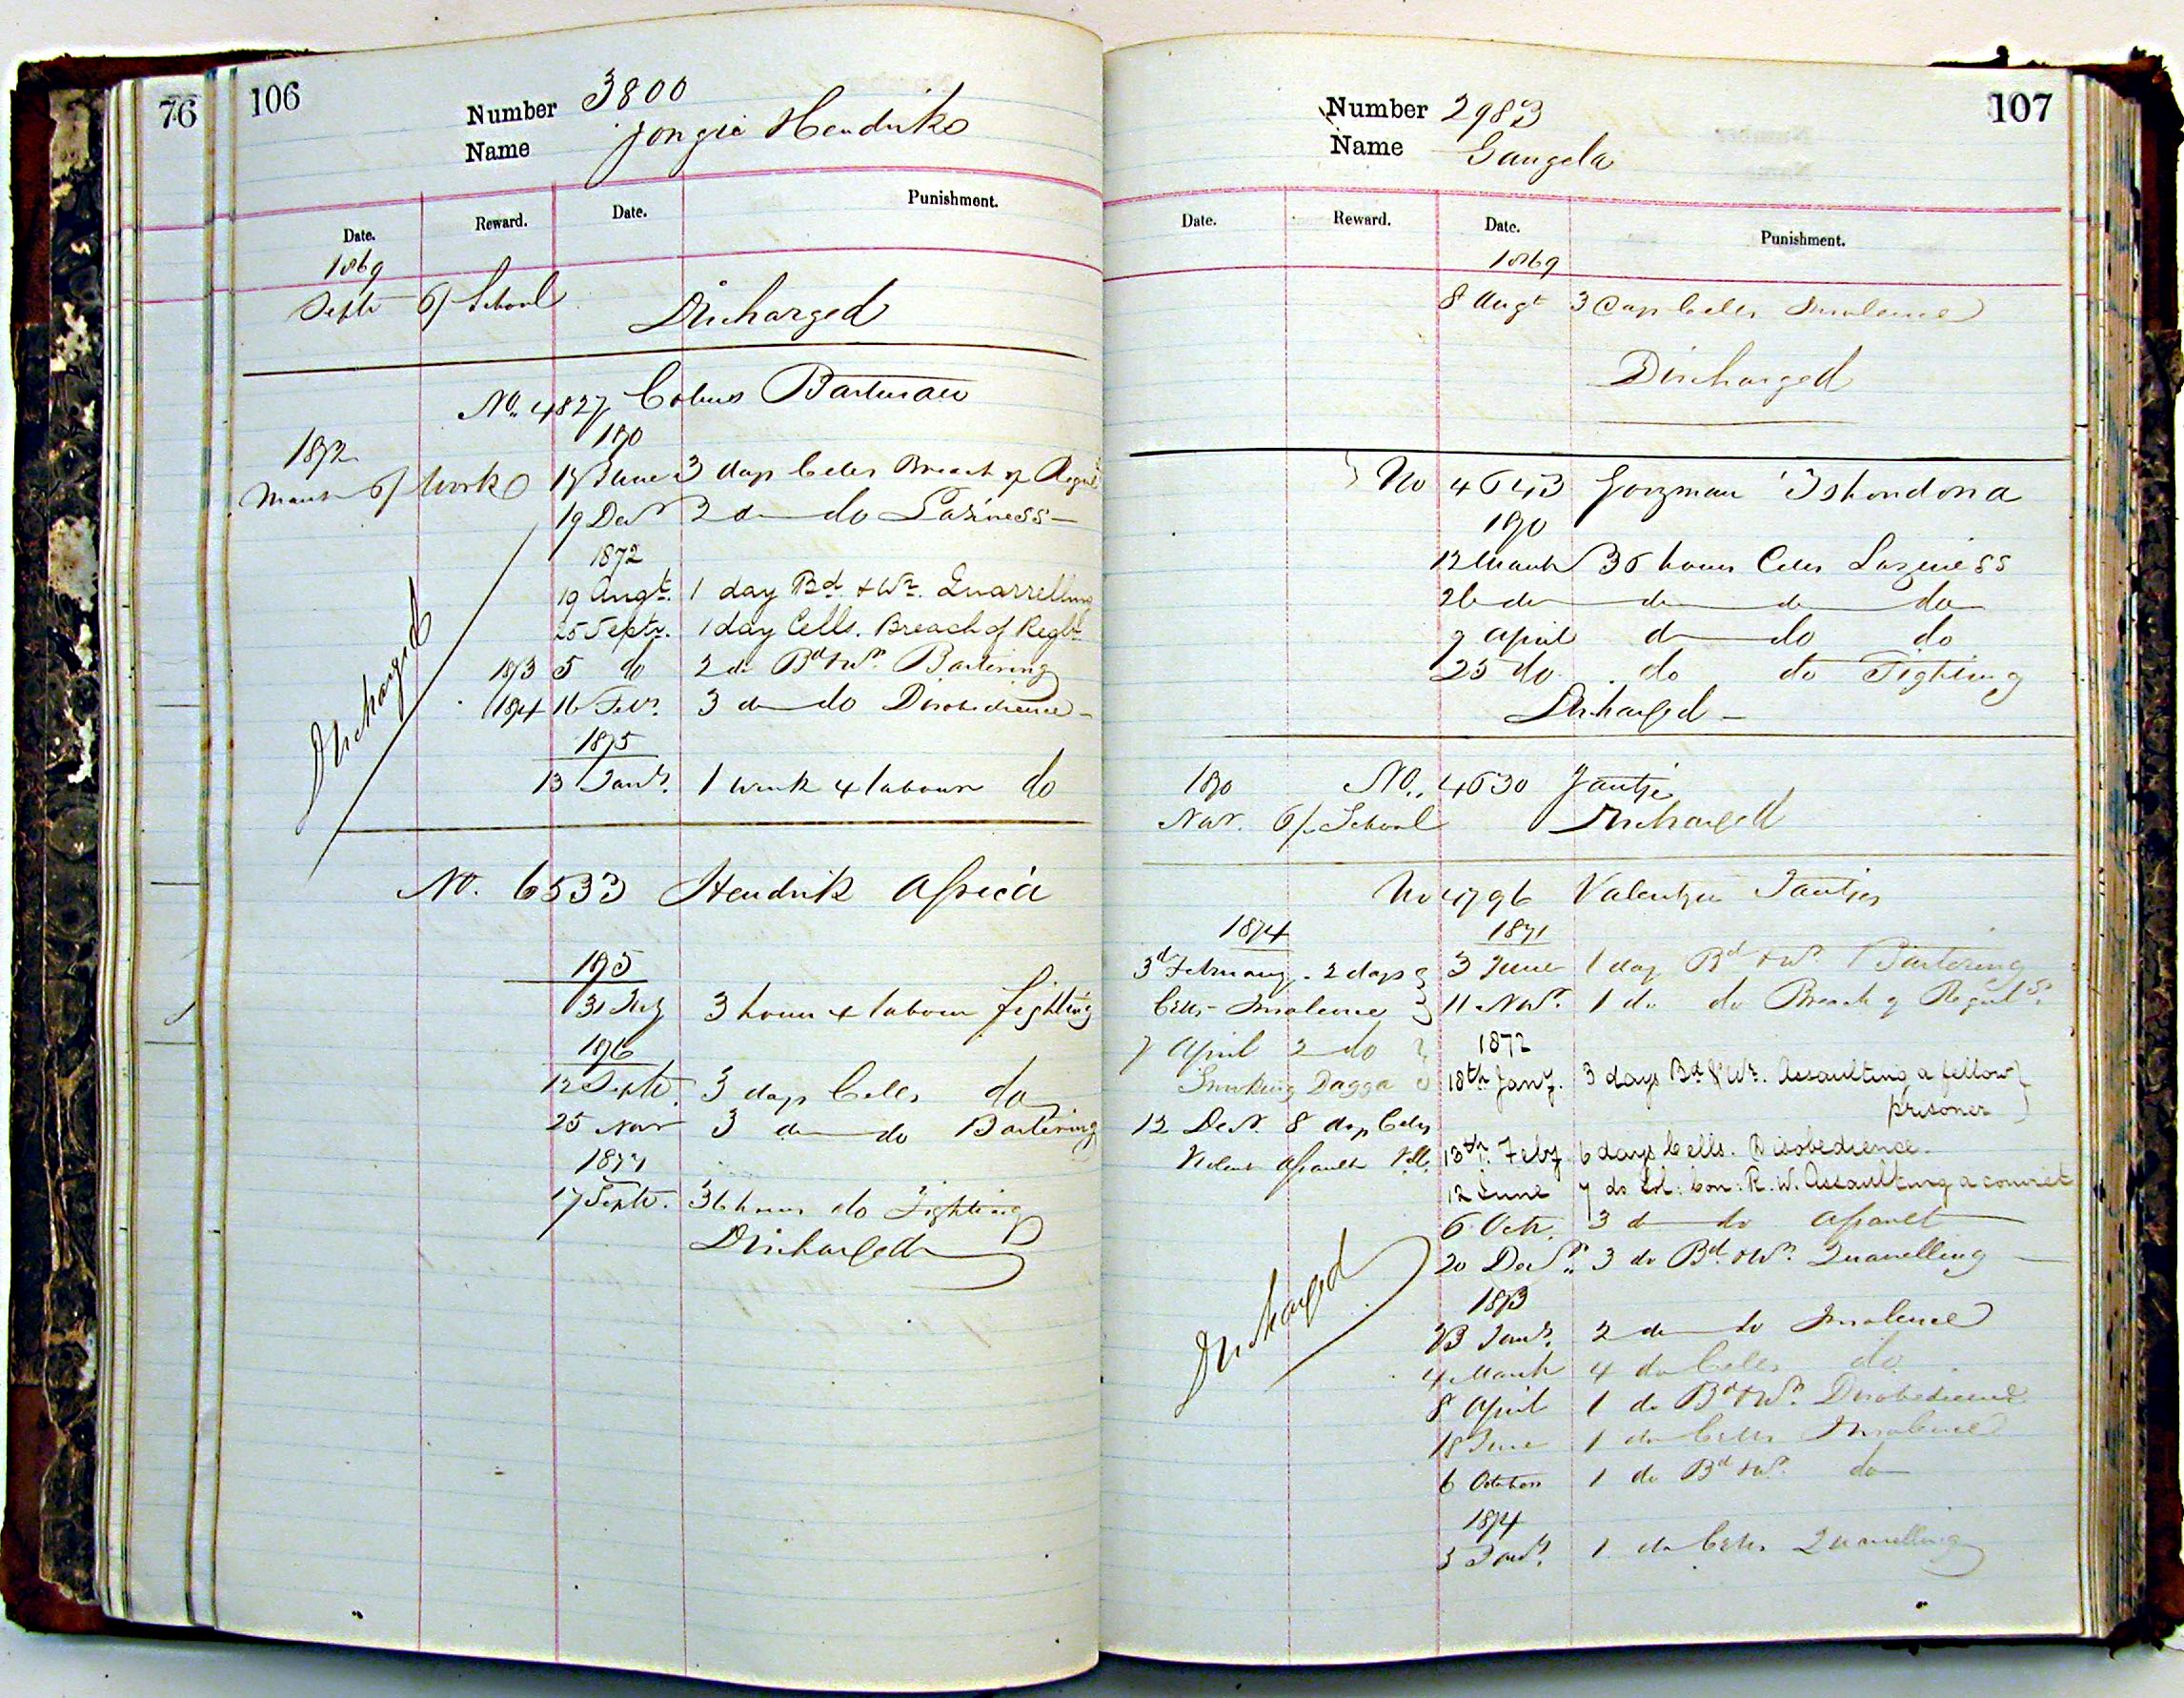 76
106
Number 3800
Name Jongie Hendriks
Date. Reward. Date. Punishment.
1869
Septr 6/ School
Discharged
No. 4827 Cobus Bartman
1870
1872
March 6/ Work 17 June 3 days Cells Breach of Regul
19 Decr 2 do do Laziness
1872
19 Augt. 1 day Bd. & Wr. Quarrelling
25 Septr. 1 day Cells. Breach of Regls
1873 5 do 2 do Bd & Wr. Bartering
1874 16 Febr. 3 do do Disobedience
1875
13 Jany. 1 week 4 labour do
Discharged
No. 6533 Hendrik Africa
1875
31 July 3 hours 4 labour fighting
1876
12 Septr. 3 days Cells do
25 Novr 3 do do Bartering
1877
17 Septr. 36 hours do Fighting
Discharged
107
Number 2983
Name Gangela
Date. Reward. Date. Punishment.
1869
8 Augt 3 days Cells Insolence
Discharged
No 4643 Gorzman
1870
12 March 36 hours Cells Laziness
26 do do do do
9 April do do do
25 do do do Fighting
Discharged
1870 No. 4630 Jantje
Novr. 6/ School Discharged
No 4796 Valentyn Jantjes
1874 1871
3d February 2 days 3 June 1 day Bd & Wr. Bartering
Cells Insolence 11 Novr. 1 do do Breach of Reguls.
7 April 2 do 1872
Smoking Dagga 18th Jany. 3 days Bd & Wr. Assaulting a fellow
prisoner
12 Decr. 8 days Cells
Violent Assault 13th. Feby 6 days Cells. Disobedience.
12 June 7 do Sol: Con: R. W. Assaulting a convict
6 Octr. 3 do do Assault
20 Decr. 3 do Bd. & Wr. Quarelling
1873
23 Jany. 2 do do Insolence
4 March 4 do Cells do
8 April 1 do Bd & Wr. Disobedience
18 June 1 do Cells Insolence
6 October 1 do Bd & Wr. do
1874
3 Jany. 1 do Cells Quarrelling
Discharged